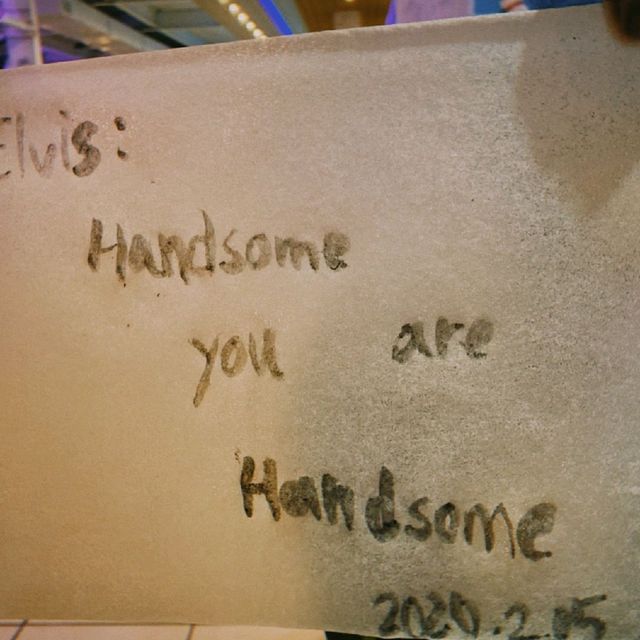 Elvis:
Handsome
you are
Handsome
2020.2.15